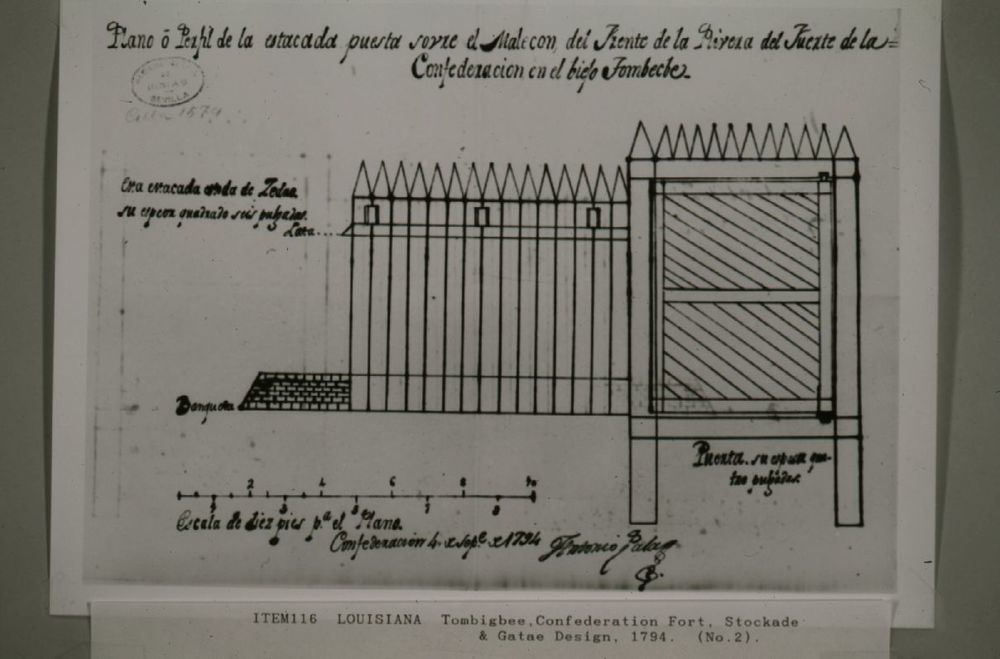 Plano ó Perfil de la estacada puesta sovre el Malecon, del Frente de la Rivera del Fuerte de la=
Confederacion en el biejo Tombeche
SEVILLA
Esta estacada es toda de Zedro.
su espesor quadrado seis pulgadas.
Lata....
Banqueta
Puerta su espesor qua-
tro pulgadas.
2 4 6 8 10
1 3 5 7 9
Escala de diez pies p.ª el Plano.
Confederación 4. de Sep.e de 1794
Antonio Palao
ITEM116 LOUISIANA Tombigbee,Confederation Fort, Stockade
& Gatae Design, 1794. (No.2).